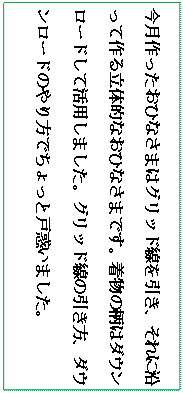 今月作ったおひなさまはグリッド線を引き、それに沿
って作る立体的なおひなさまです。着物の柄はダウン
ロードして活用しました。グリッド線の引き方、ダウ
ンロードのやり方でちょっと戸惑いました。